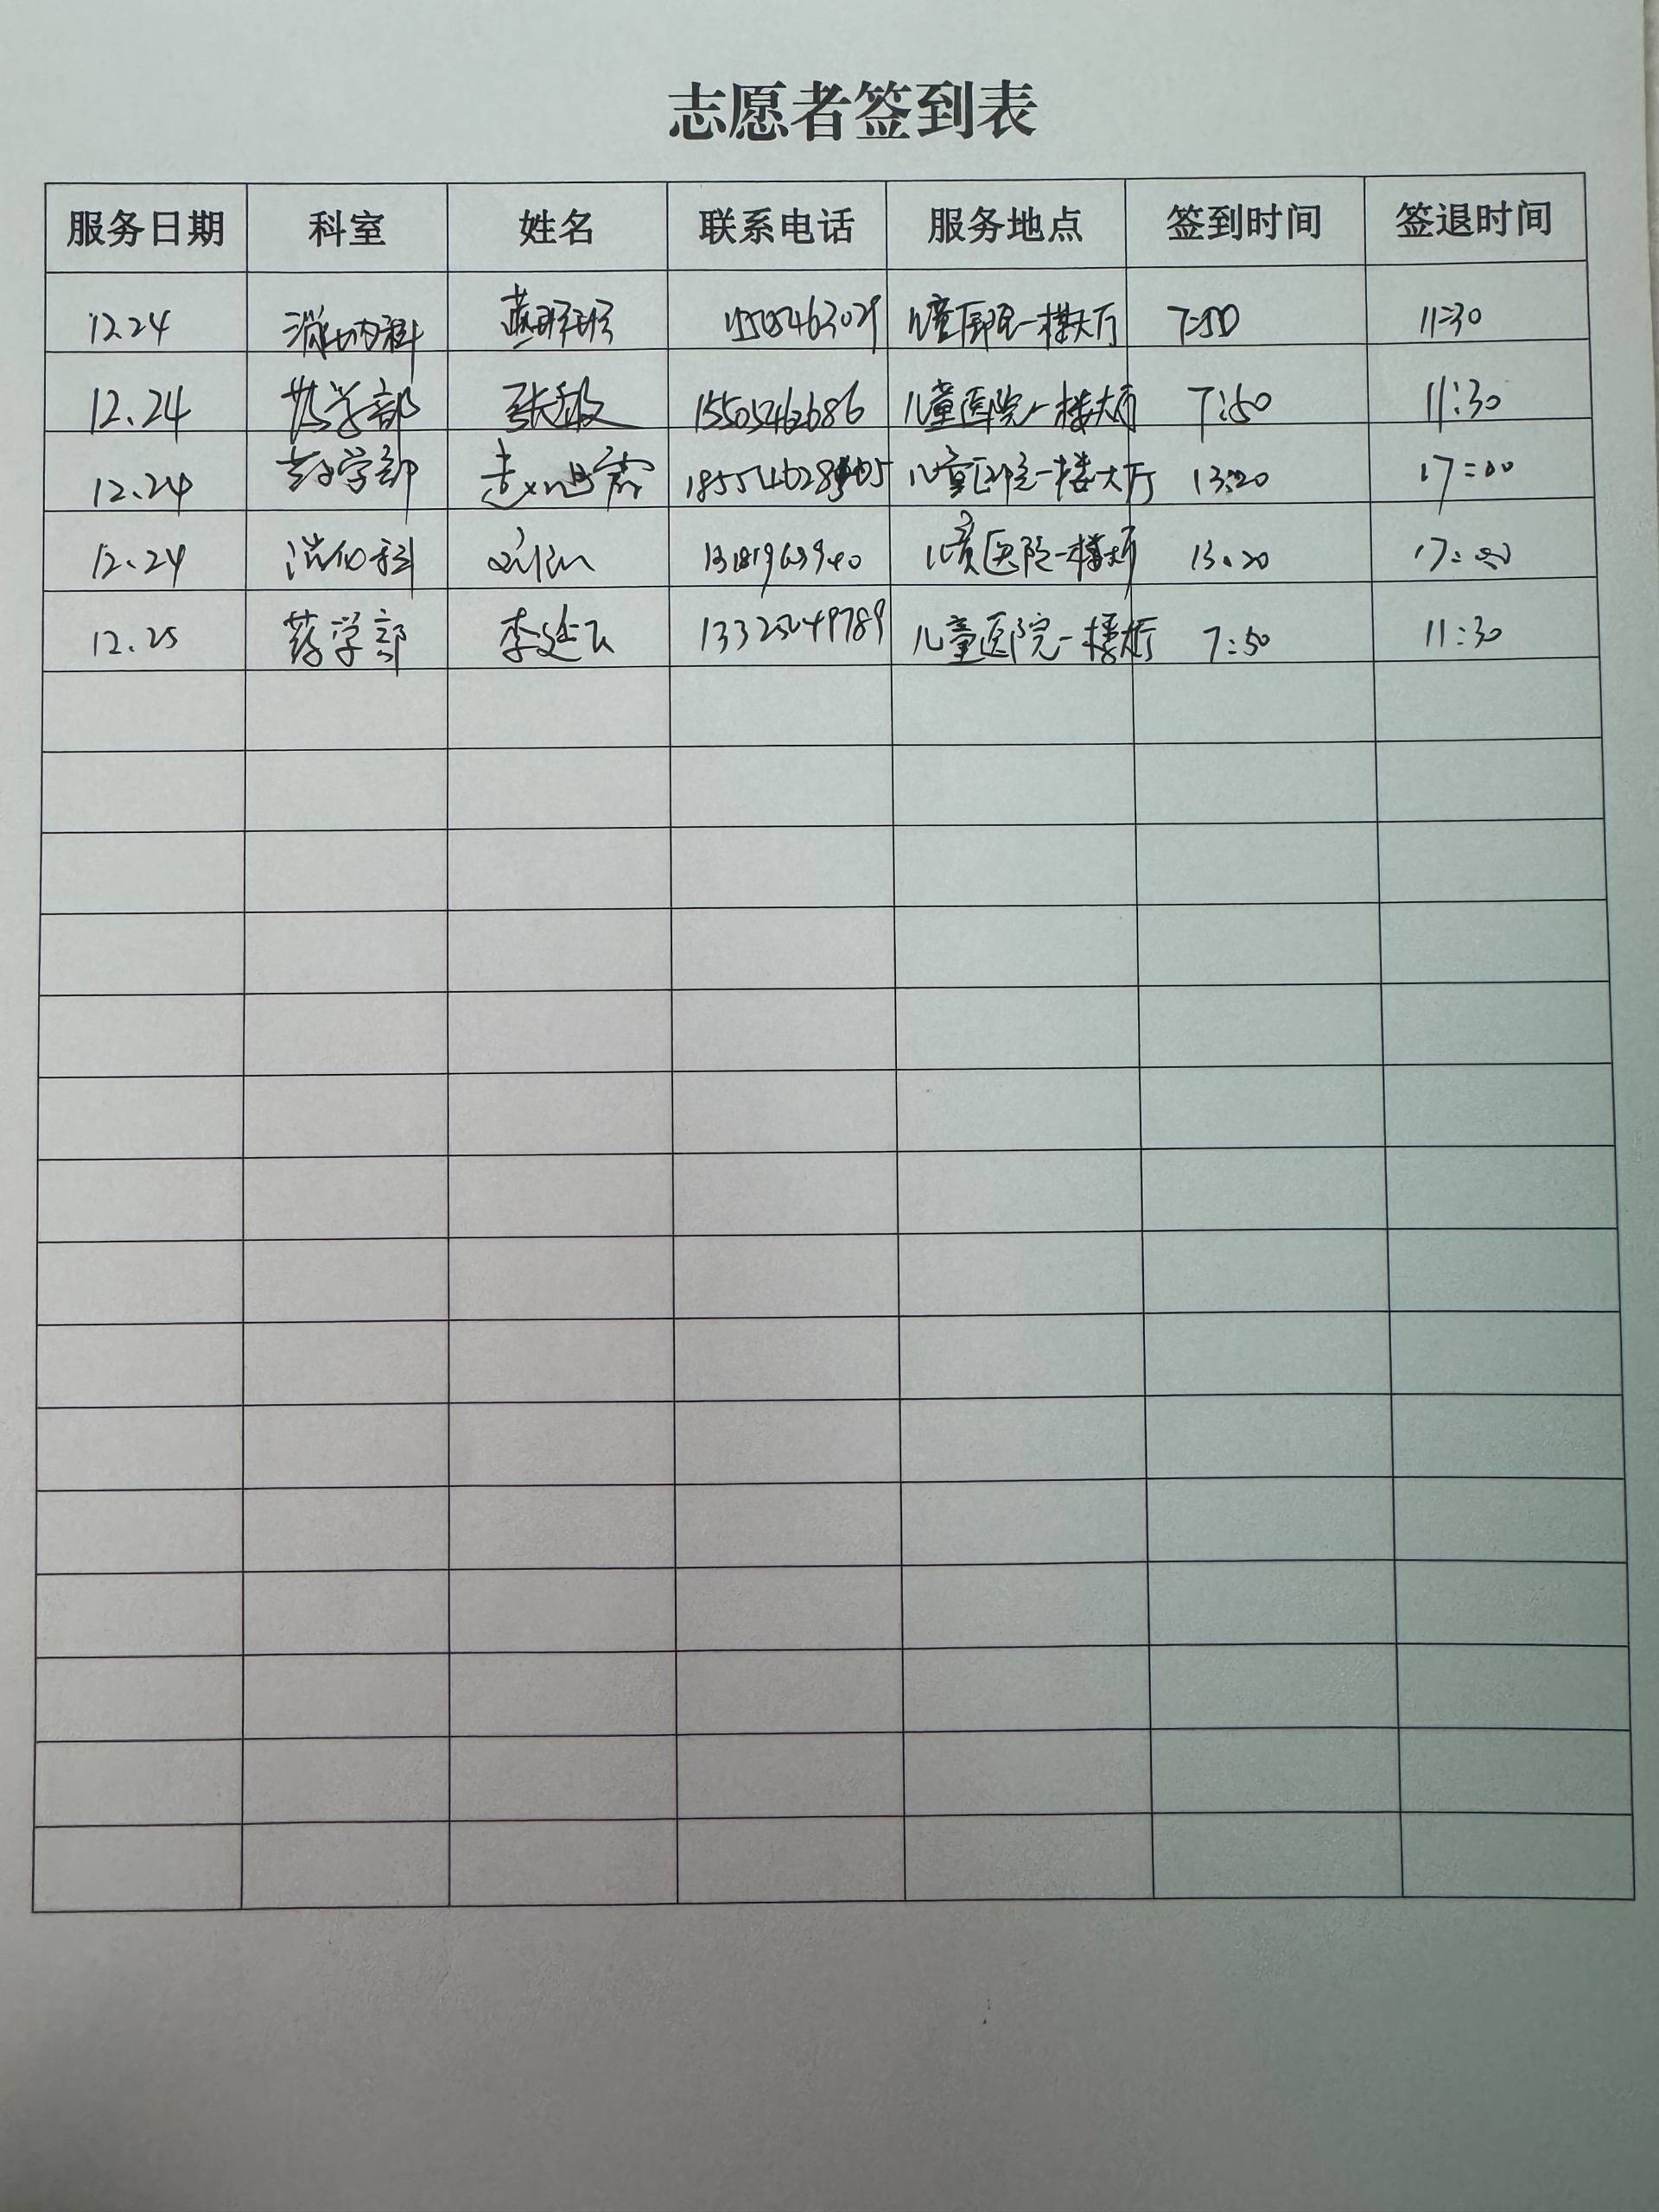 志愿者签到表
服务日期 科室 姓名 联系电话 服务地点 签到时间 签退时间
12.24 消化内科 儿童医院一楼大厅 7:50 11:30
12.24 药学部 张敏 15505462686 儿童医院一楼大厅 7:50 11:30
12.24 药学部 儿童医院一楼大厅 13:20 17:00
12.24 消化科 儿童医院一楼大厅 13.20 17:00
12.25 药学部 李廷飞 儿童医院一楼大厅 7:50 11:30